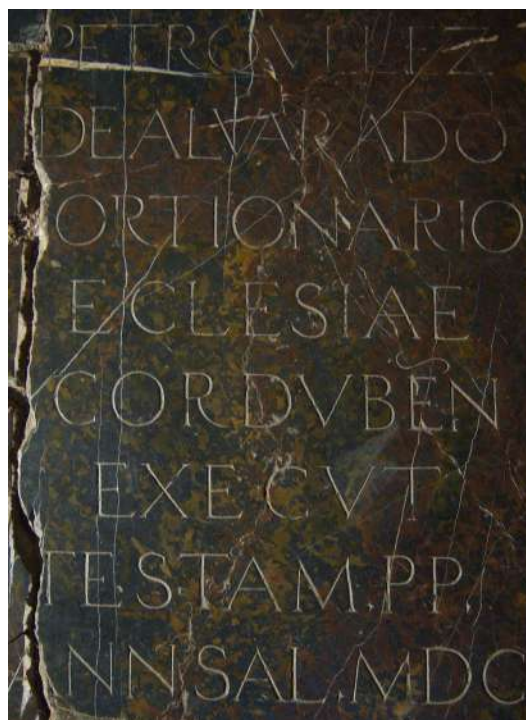 PETRO VELEZ
DE ALVARADO
ORTIONARIO
ECLESIAE
CORDVBEÑ
EXECVT
TE.STAM.PP.
ANN SAL.MDC